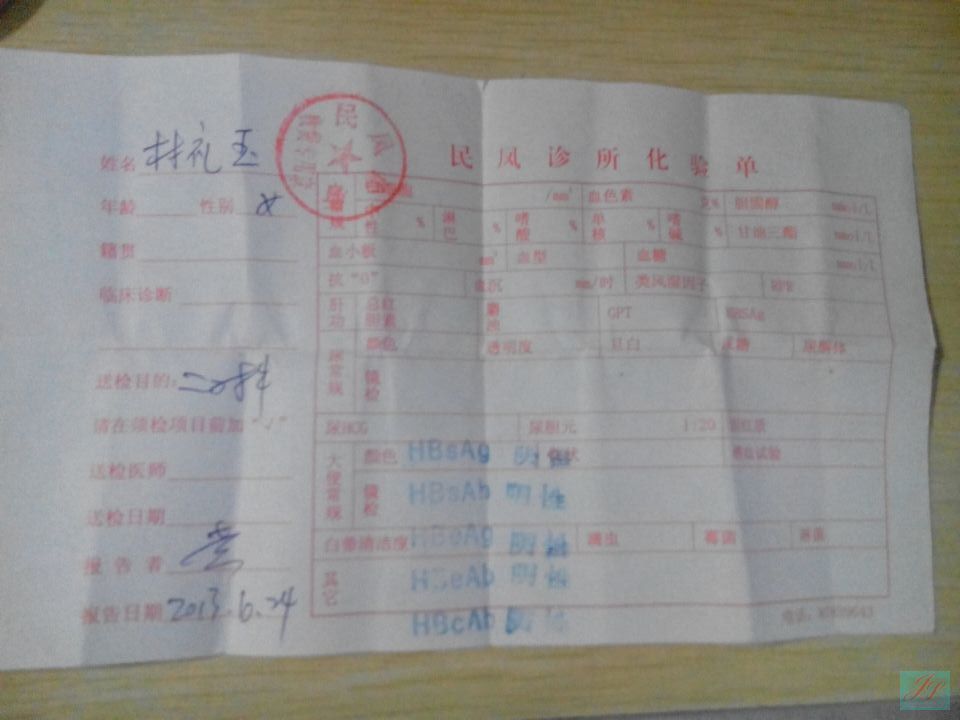 民风诊所化验单
姓名 林礼玉
年龄 性别 女
籍贯
临床诊断
送检目的：二对半
请在须检项目前加“√”
送检医师
送检日期
报告者
报告日期 2013.6.24
民风
/mm³ 血色素 克% 胆固醇 mmol/L
% 淋巴 % 嗜酸 % 单核 % 嗜碱 % 甘油三酯 mmol/L
血小板 mm³ 血型 血糖 mmol/L
抗“O” 血沉 mm/时 类风湿因子 RPR
肝功 总红胆素 GPT HBSAg
尿常规 颜色 透明度 蛋白 尿糖 尿酮体
镜检
尿HCG 尿胆元 1:20 胆红质
大便常规 颜色 HBsAg 阴性
镜检 HBsAb 阴性
白带清洁度 HBeAg 阴性 滴虫 霉菌
其它 HBeAb 阴性
HBcAb